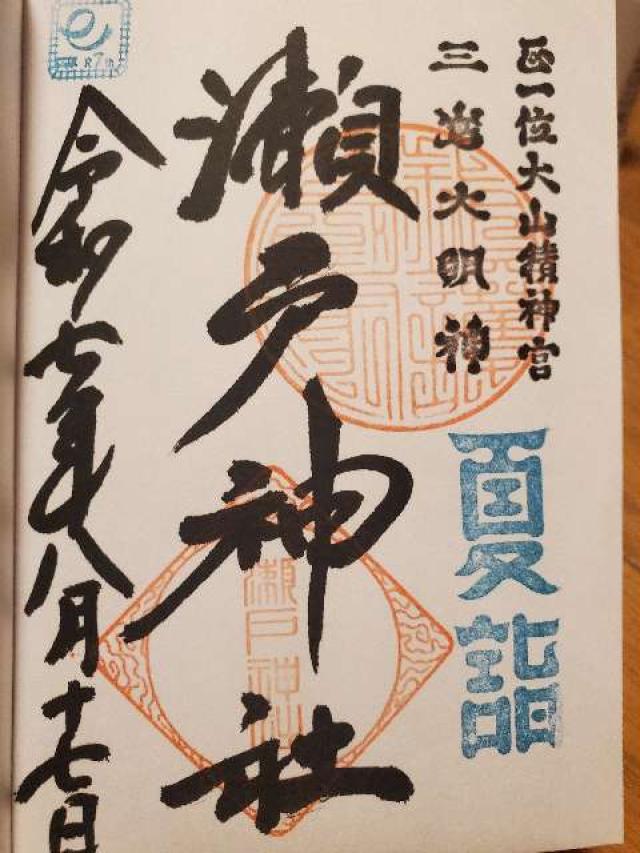 正一位大山積神宮
三嶌大明神
夏詣
瀬戸神社
令和七年八月十七日
瀬戸神社